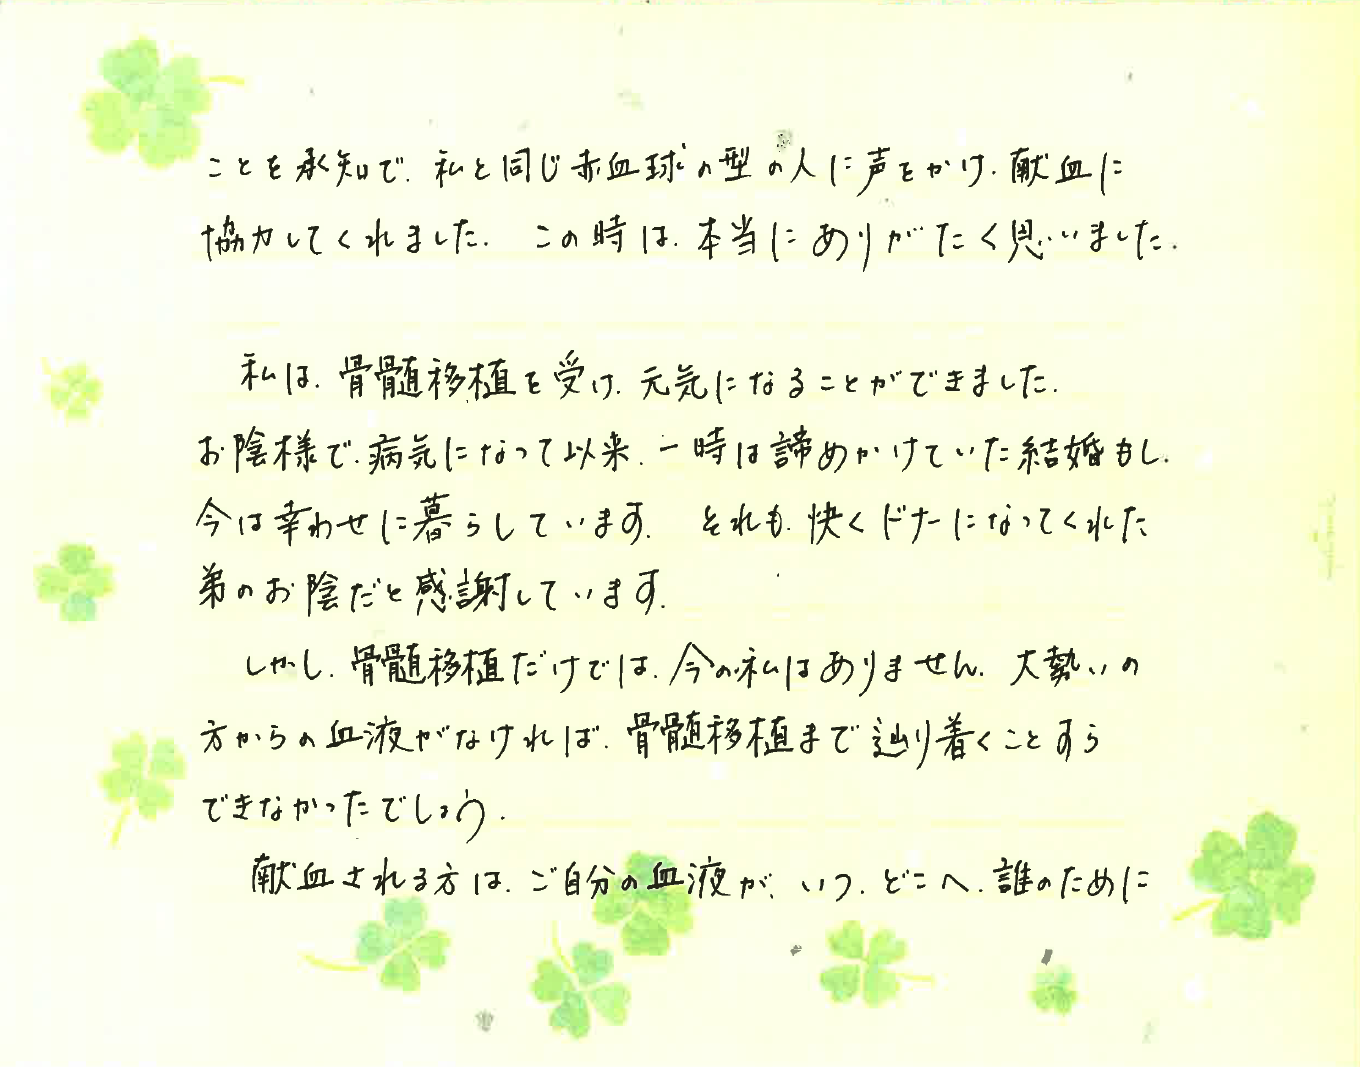 ことを承知で、私と同じ赤血球の型の人に声をかけ、献血に
協力してくれました。 この時は、本当にありがたく思いました。
私は、骨髄移植を受け、元気になることができました。
お陰様で、病気になって以来、一時は諦めかけていた結婚もし、
今は幸わせに暮らしています。 それも、快くドナーになってくれた
弟のお陰だと感謝しています。
しかし、骨髄移植だけでは、今の私はありません。大勢いの
方からの血液がなければ、骨髄移植まで辿り着くことすら
できなかったでしょう。
献血される方は、ご自分の血液が、いつ、どこへ、誰のために